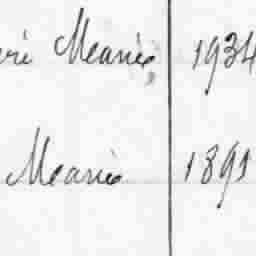 eré Mearie 1934
Mearie 1891